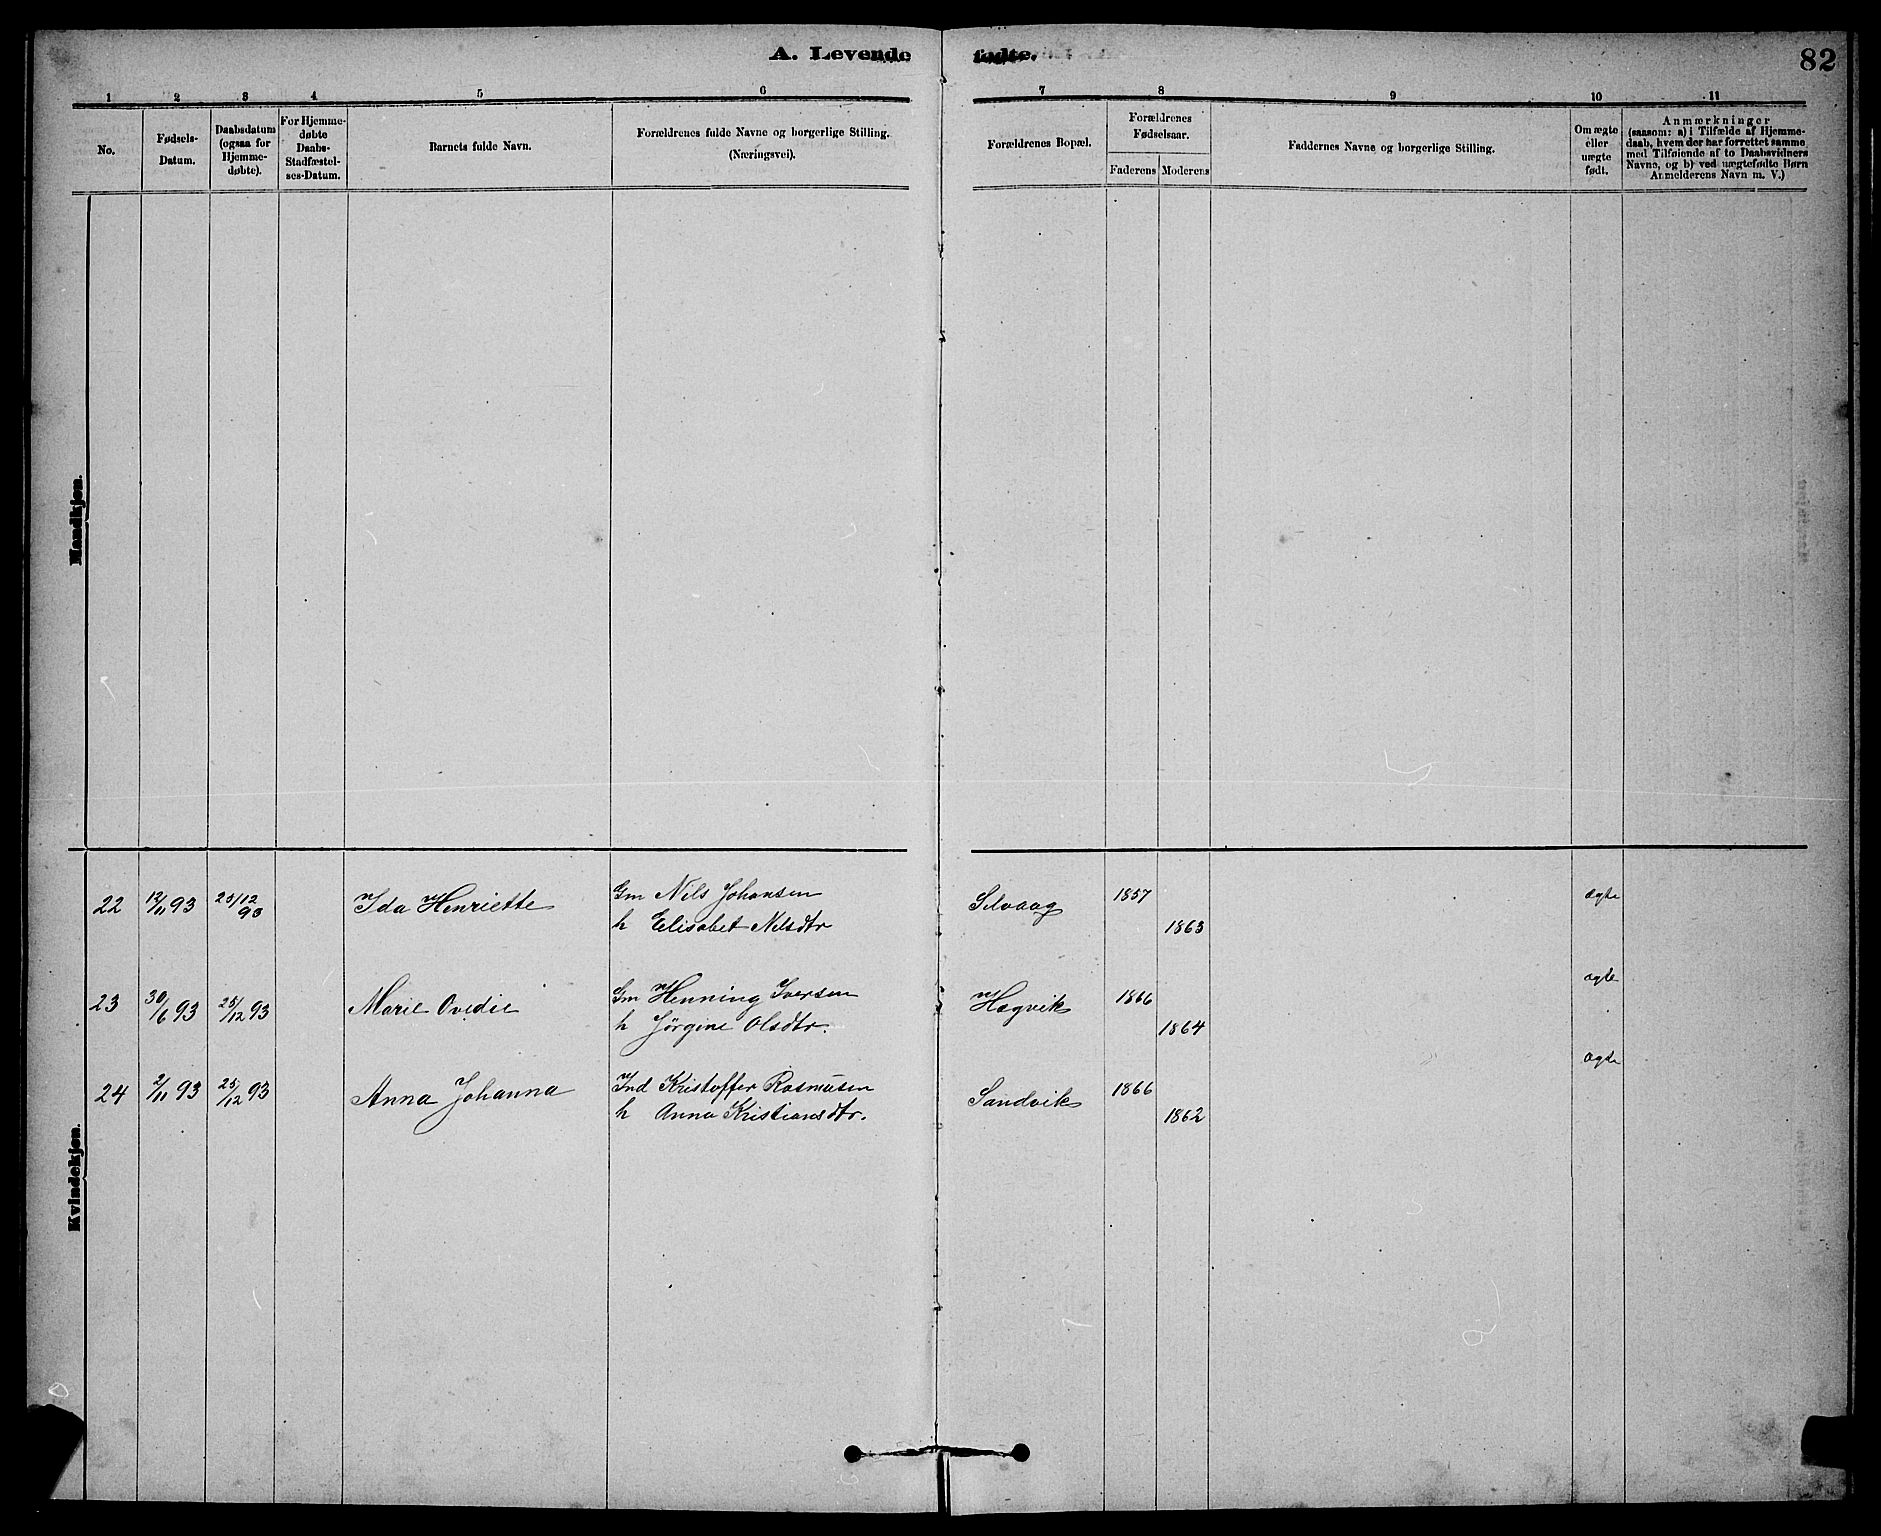 A. Levende fødte. 82
1 2 3 4 5 6 7 8 9 10 11
No.
Fødsels-
Datum.
Daabsdatum
(ogsaa for
Hjemme-
døbte).
For Hjemme-
døbte
Daabs-
Stadfæstel-
ses-Datum.
Barnets fulde Navn.
Forældrenes fulde Navne og borgerlige Stilling.
(Næringsvei).
Forældrenes Bopæl.
Forældrenes
Fødselsaar.
Faderens Moderens
Faddernes Navne og borgerlige Stilling.
Om ægte
eller
uægte
født.
Anmærkninger
(saasom: a) i Tilfælde af Hjemme-
daab, hvem der har forrettet samme
med Tilføiende af to Daabsvidners
Navne, og b) ved uægtefødte Børn
Anmelderens Navn m. V.)
Mandkjøn.
22 12/11 93 25/12 93 Ida Henriette Gm Nils Johansen Selvaag 1857 ægte
h Elisabet Nilsdtr 1863
23 30/6 93 25/12 93 Marie Ovedie Gm Henning Iversen Hægvik 1866 ægte
h Jørgine Olsdtr. 1864
24 2/11 93 25/12 93 Anna Johanna Ind Kristoffer Rasmusen Sandvik 1866 ægte
h Anna Kristiansdtr. 1862
Kvindekjøn.